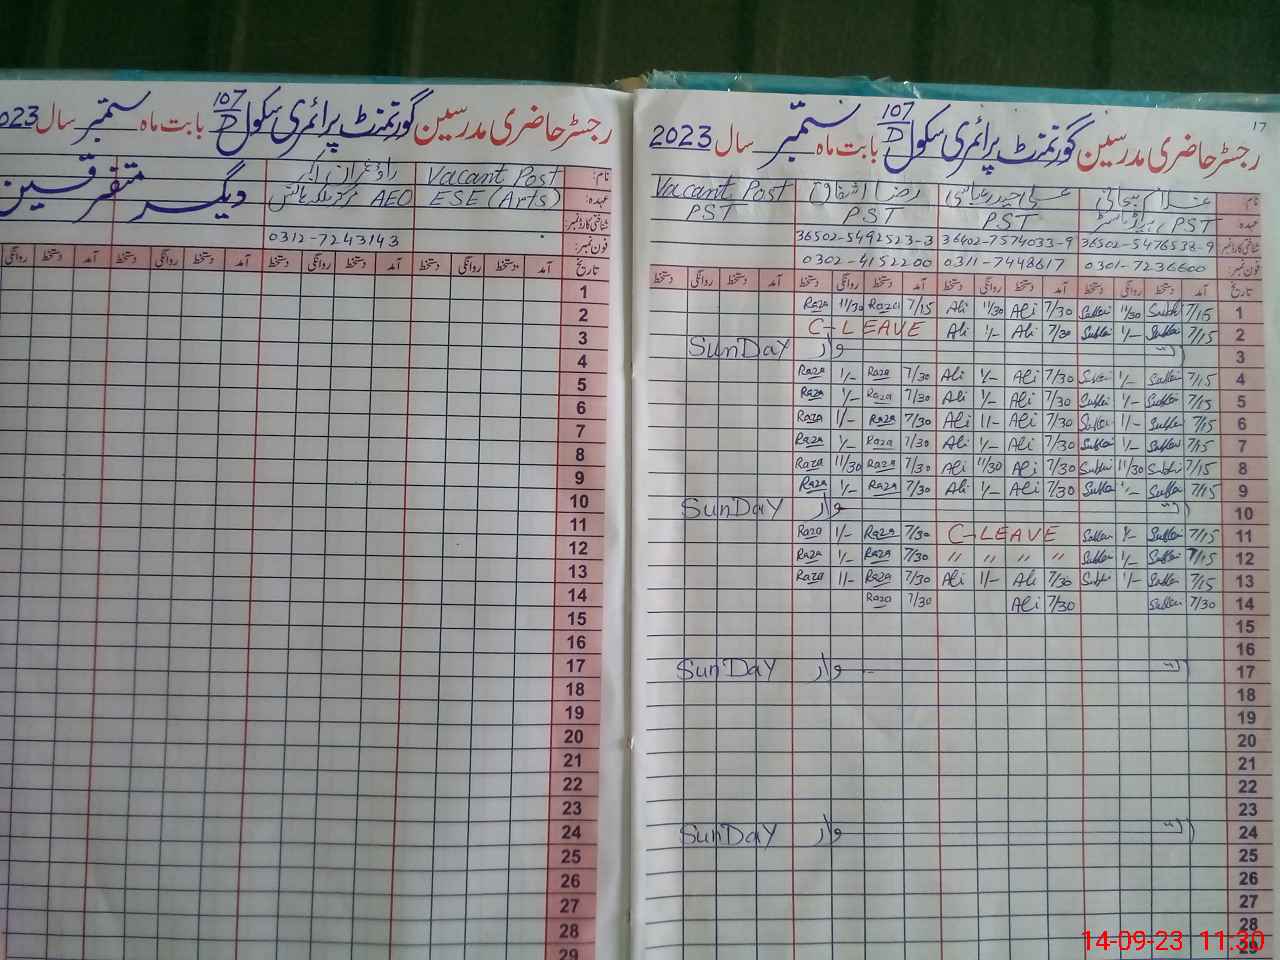 رجسٹر حاضری مدرسین گورنمنٹ پرائمری سکول 107/D بابت ماہ ستمبر سال 2023
نام: Vacant Post
عہدہ: ESE (Arts) AEO دیگر متفرقین
شناختی کارڈ نمبر
فون نمبر: 0312-7243143
تاریخ آمد دستخط روانگی دستخط آمد دستخط روانگی دستخط آمد دستخط روانگی دستخط آمد دستخط روانگی
1
2
3
4
5
6
7
8
9
10
11
12
13
14
15
16
17
18
19
20
21
22
23
24
25
26
27
28
29
17
رجسٹر حاضری مدرسین گورنمنٹ پرائمری سکول 107/D بابت ماہ ستمبر سال 2023
نام Vacant Post
عہدہ PST PST PST PST
شناختی کارڈ نمبر 36502-5476538-9 36402-7574033-9 36502-5492523-3
فون نمبر: 0301-7236600 0311-7448617 0302-4152200
تاریخ آمد دستخط روانگی دستخط آمد دستخط روانگی دستخط آمد دستخط روانگی دستخط آمد دستخط روانگی دستخط
1 7/15 11/30 7/30 Ali 11/30 Ali 7/15 Raza 11/30 Raza
2 7/15 1/- 7/30 Ali 1/- Ali C-LEAVE
3 اتوار SunDay
4 7/15 1/- 7/30 Ali 1/- Ali 7/30 Raza 1/- Raza
5 7/15 1/- 7/30 Ali 1/- Ali 7/30 Raza 1/- Raza
6 7/15 1/- 7/30 Ali 1/- Ali 7/30 Raza 1/- Raza
7 7/15 1/- 7/30 Ali 1/- Ali 7/30 Raza 1/- Raza
8 7/15 11/30 7/30 Ali 11/30 Ali 7/30 Raza 11/30 Raza
9 7/15 1/- 7/30 Ali 1/- Ali 7/30 Raza 1/- Raza
10 اتوار SunDay
11 7/15 1/- C-LEAVE 7/30 Raza 1/- Raza
12 7/15 1/- " " " " 7/30 Raza 1/- Raza
13 7/15 1/- 7/30 Ali 1/- Ali 7/30 Raza 1/- Raza
14 7/30 7/30 Ali 7/30 Raza
15
16
17 اتوار SunDay
18
19
20
21
22
23
24 اتوار SunDay
25
26
27
28
29
14-09-23 11:30